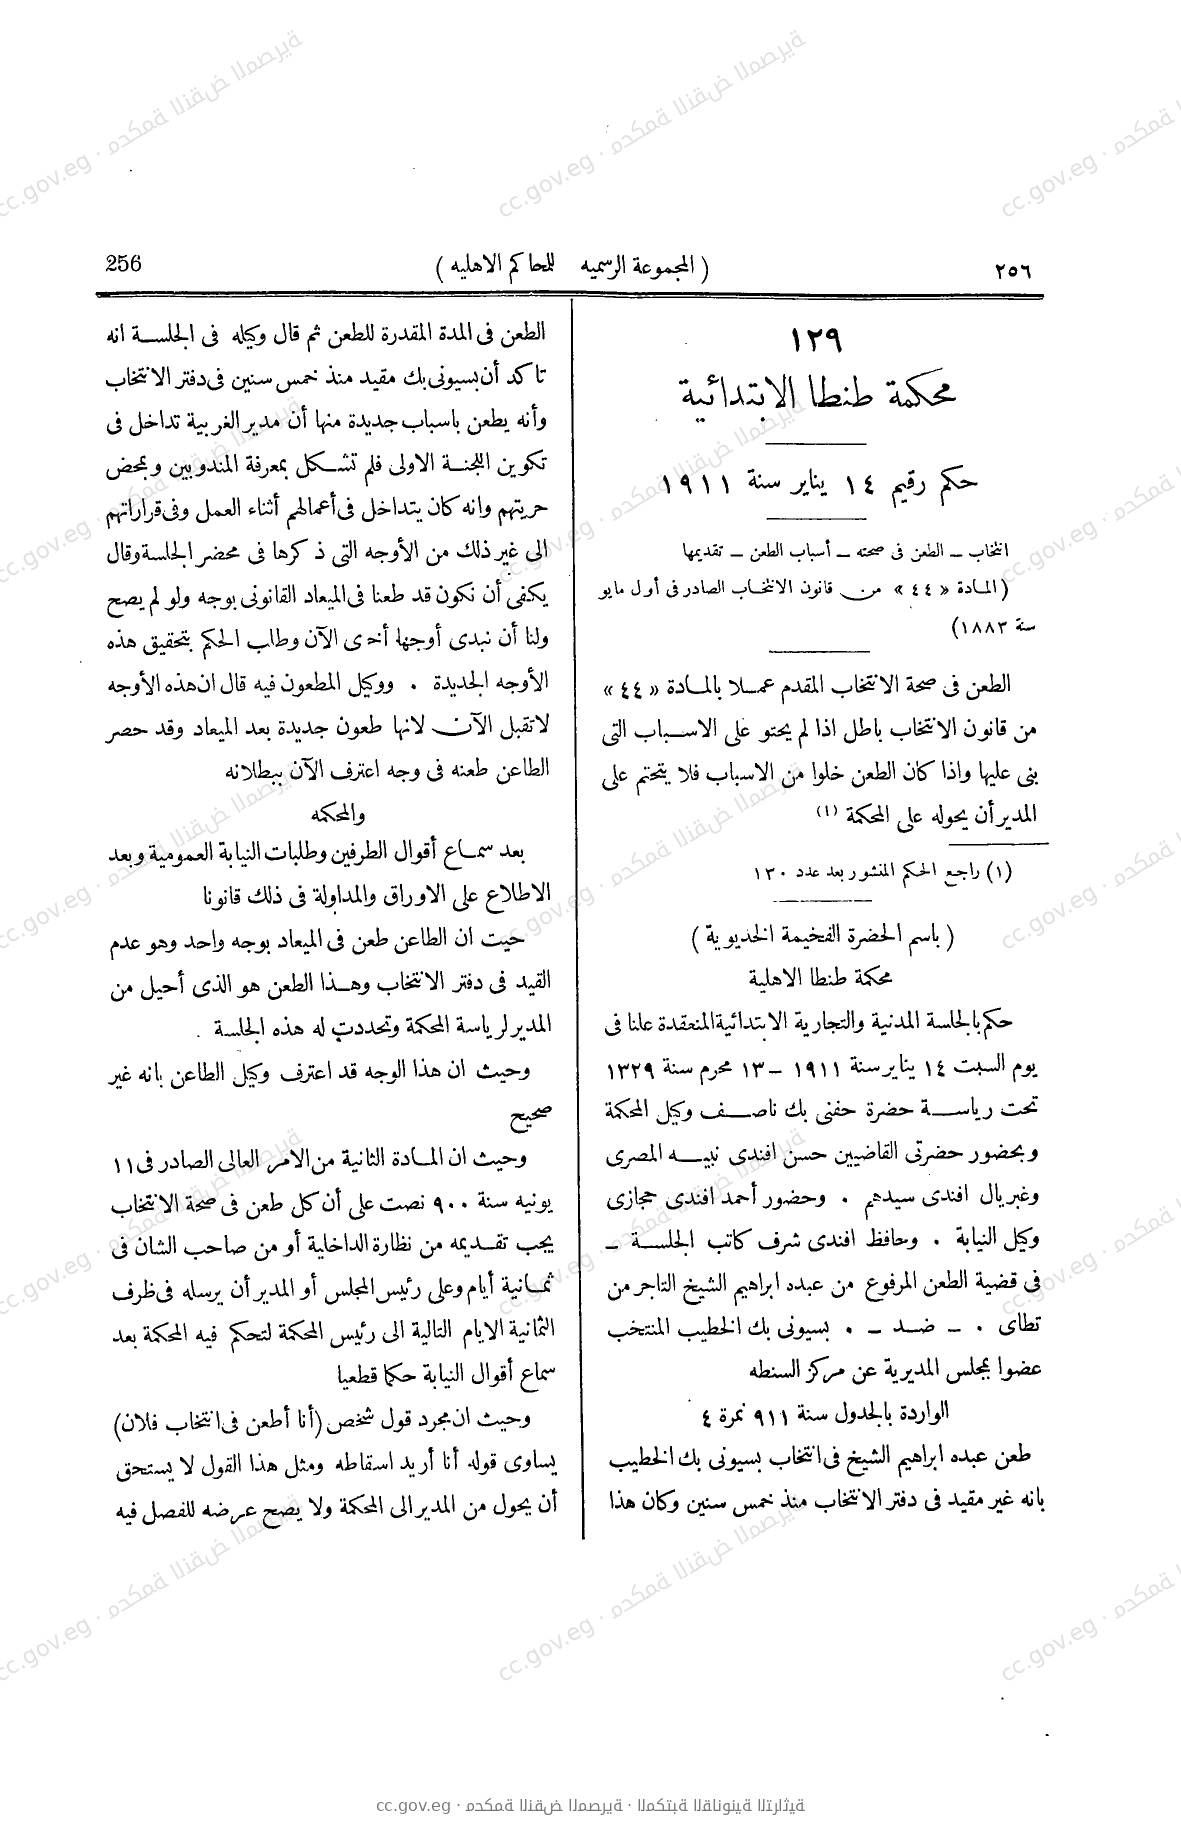 ٢٥٦
( المجموعة الرسميه للمحاكم الاهليه )
256
١٢٩
محكمة طنطا الابتدائية
حكم رقيم ١٤ يناير سنة ١٩١١
انتخاب – الطعن فى صحته – أسباب الطعن – تقديمها
( المادة « ٤٤ » من قانون الانتخاب الصادر فى أول مايو
سنة ١٨٨٣)
الطعن فى صحة الانتخاب المقدم عملا بالمادة « ٤٤ »
من قانون الانتخاب باطل اذا لم يحتو على الاسباب التى
بنى عليها واذا كان الطعن خلوا من الاسباب فلا يتحتم على
المدير أن يحوله على المحكمة (١)
(١) راجع الحكم المنشور بعد عدد ١٣٠
( باسم الحضرة الفخيمة الخديوية )
محكمة طنطا الاهلية
حكم بالجلسة المدنية والتجارية الابتدائية المنعقدة علنا فى
يوم السبت ١٤ يناير سنة ١٩١١ – ١٣ محرم سنة ١٣٢٩
تحت رياسة حضرة حفنى بك ناصف وكيل المحكمة
وبحضور حضرتى القاضيين حسن افندى نبيه المصرى
وغبريال افندى سيدهم . وحضور أحمد افندى حجازى
وكيل النيابة . وحافظ افندى شرف كاتب الجلسة –
فى قضية الطعن المرفوع من عبده ابراهيم الشيخ التاجر من
تطاى . – ضد – . بسيونى بك الخطيب المنتخب
عضوا بمجلس المديرية عن مركز السنطه
الواردة بالجدول سنة ٩١١ نمرة ٤
طعن عبده ابراهيم الشيخ فى انتخاب بسيونى بك الخطيب
بانه غير مقيد فى دفتر الانتخاب منذ خمس سنين وكان هذا
الطعن فى المدة المقدرة للطعن ثم قال وكيله فى الجلسة انه
تاكد أن بسيونى بك مقيد منذ خمس سنين فى دفتر الانتخاب
وأنه يطعن باسباب جديدة منها أن مدير الغربية تداخل فى
تكوين اللجنة الاولى فلم تشكل بمعرفة المندوبين وبمحض
حريتهم وانه كان يتداخل فى أعمالهم أثناء العمل وفى قراراتهم
الى غير ذلك من الأوجه التى ذكرها فى محضر الجلسة وقال
يكفى أن نكون قد طعنا فى الميعاد القانونى بوجه ولو لم يصح
ولنا أن نبدى أوجها أخرى الآن وطلب الحكم بتحقيق هذه
الأوجه الجديدة . ووكيل المطعون فيه قال ان هذه الأوجه
لا تقبل الآن لانها طعون جديدة بعد الميعاد وقد حصر
الطاعن طعنه فى وجه اعترف الآن ببطلانه
والمحكمه
بعد سماع أقوال الطرفين وطلبات النيابة العمومية وبعد
الاطلاع على الاوراق والمداولة فى ذلك قانونا
حيت ان الطاعن طعن فى الميعاد بوجه واحد وهو عدم
القيد فى دفتر الانتخاب وهذا الطعن هو الذى أحيل من
المدير لرياسة المحكمة وتحددت له هذه الجلسة .
وحيث ان هذا الوجه قد اعترف وكيل الطاعن بانه غير
صحيح
وحيث ان المادة الثانية من الامر العالى الصادر فى ١١
يونيه سنة ٩٠٠ نصت على أن كل طعن فى صحة الانتخاب
يجب تقديمه من نظارة الداخلية أو من صاحب الشان فى
ثمانية أيام وعلى رئيس المجلس أو المدير أن يرسله فى ظرف
الثمانية الايام التالية الى رئيس المحكمة لتحكم فيه المحكمة بعد
سماع أقوال النيابة حكما قطعيا
وحيث ان مجرد قول شخص (أنا أطعن فى انتخاب فلان)
يساوى قوله أنا أريد اسقاطه ومثل هذا القول لا يستحق
أن يحول من المدير الى المحكمة ولا يصح عرضه للفصل فيه
cc.gov.eg · محكمة النقض المصرية · المكتبة القانونية التراثية